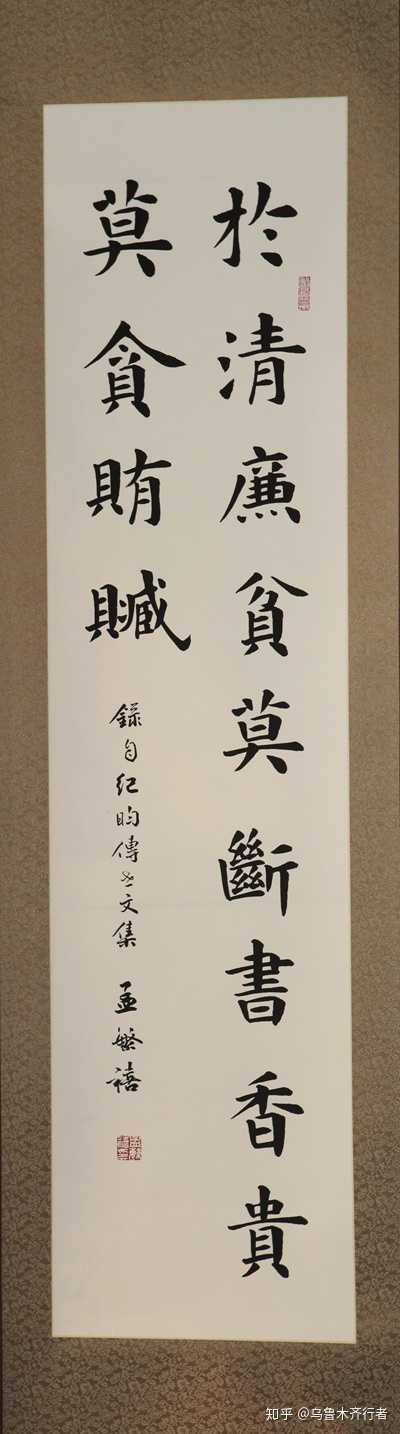 於清廉貧莫斷書香貴
莫貪賄贓
錄自紀昀傳世文集 孟繁禧
知乎 @乌鲁木齐行者